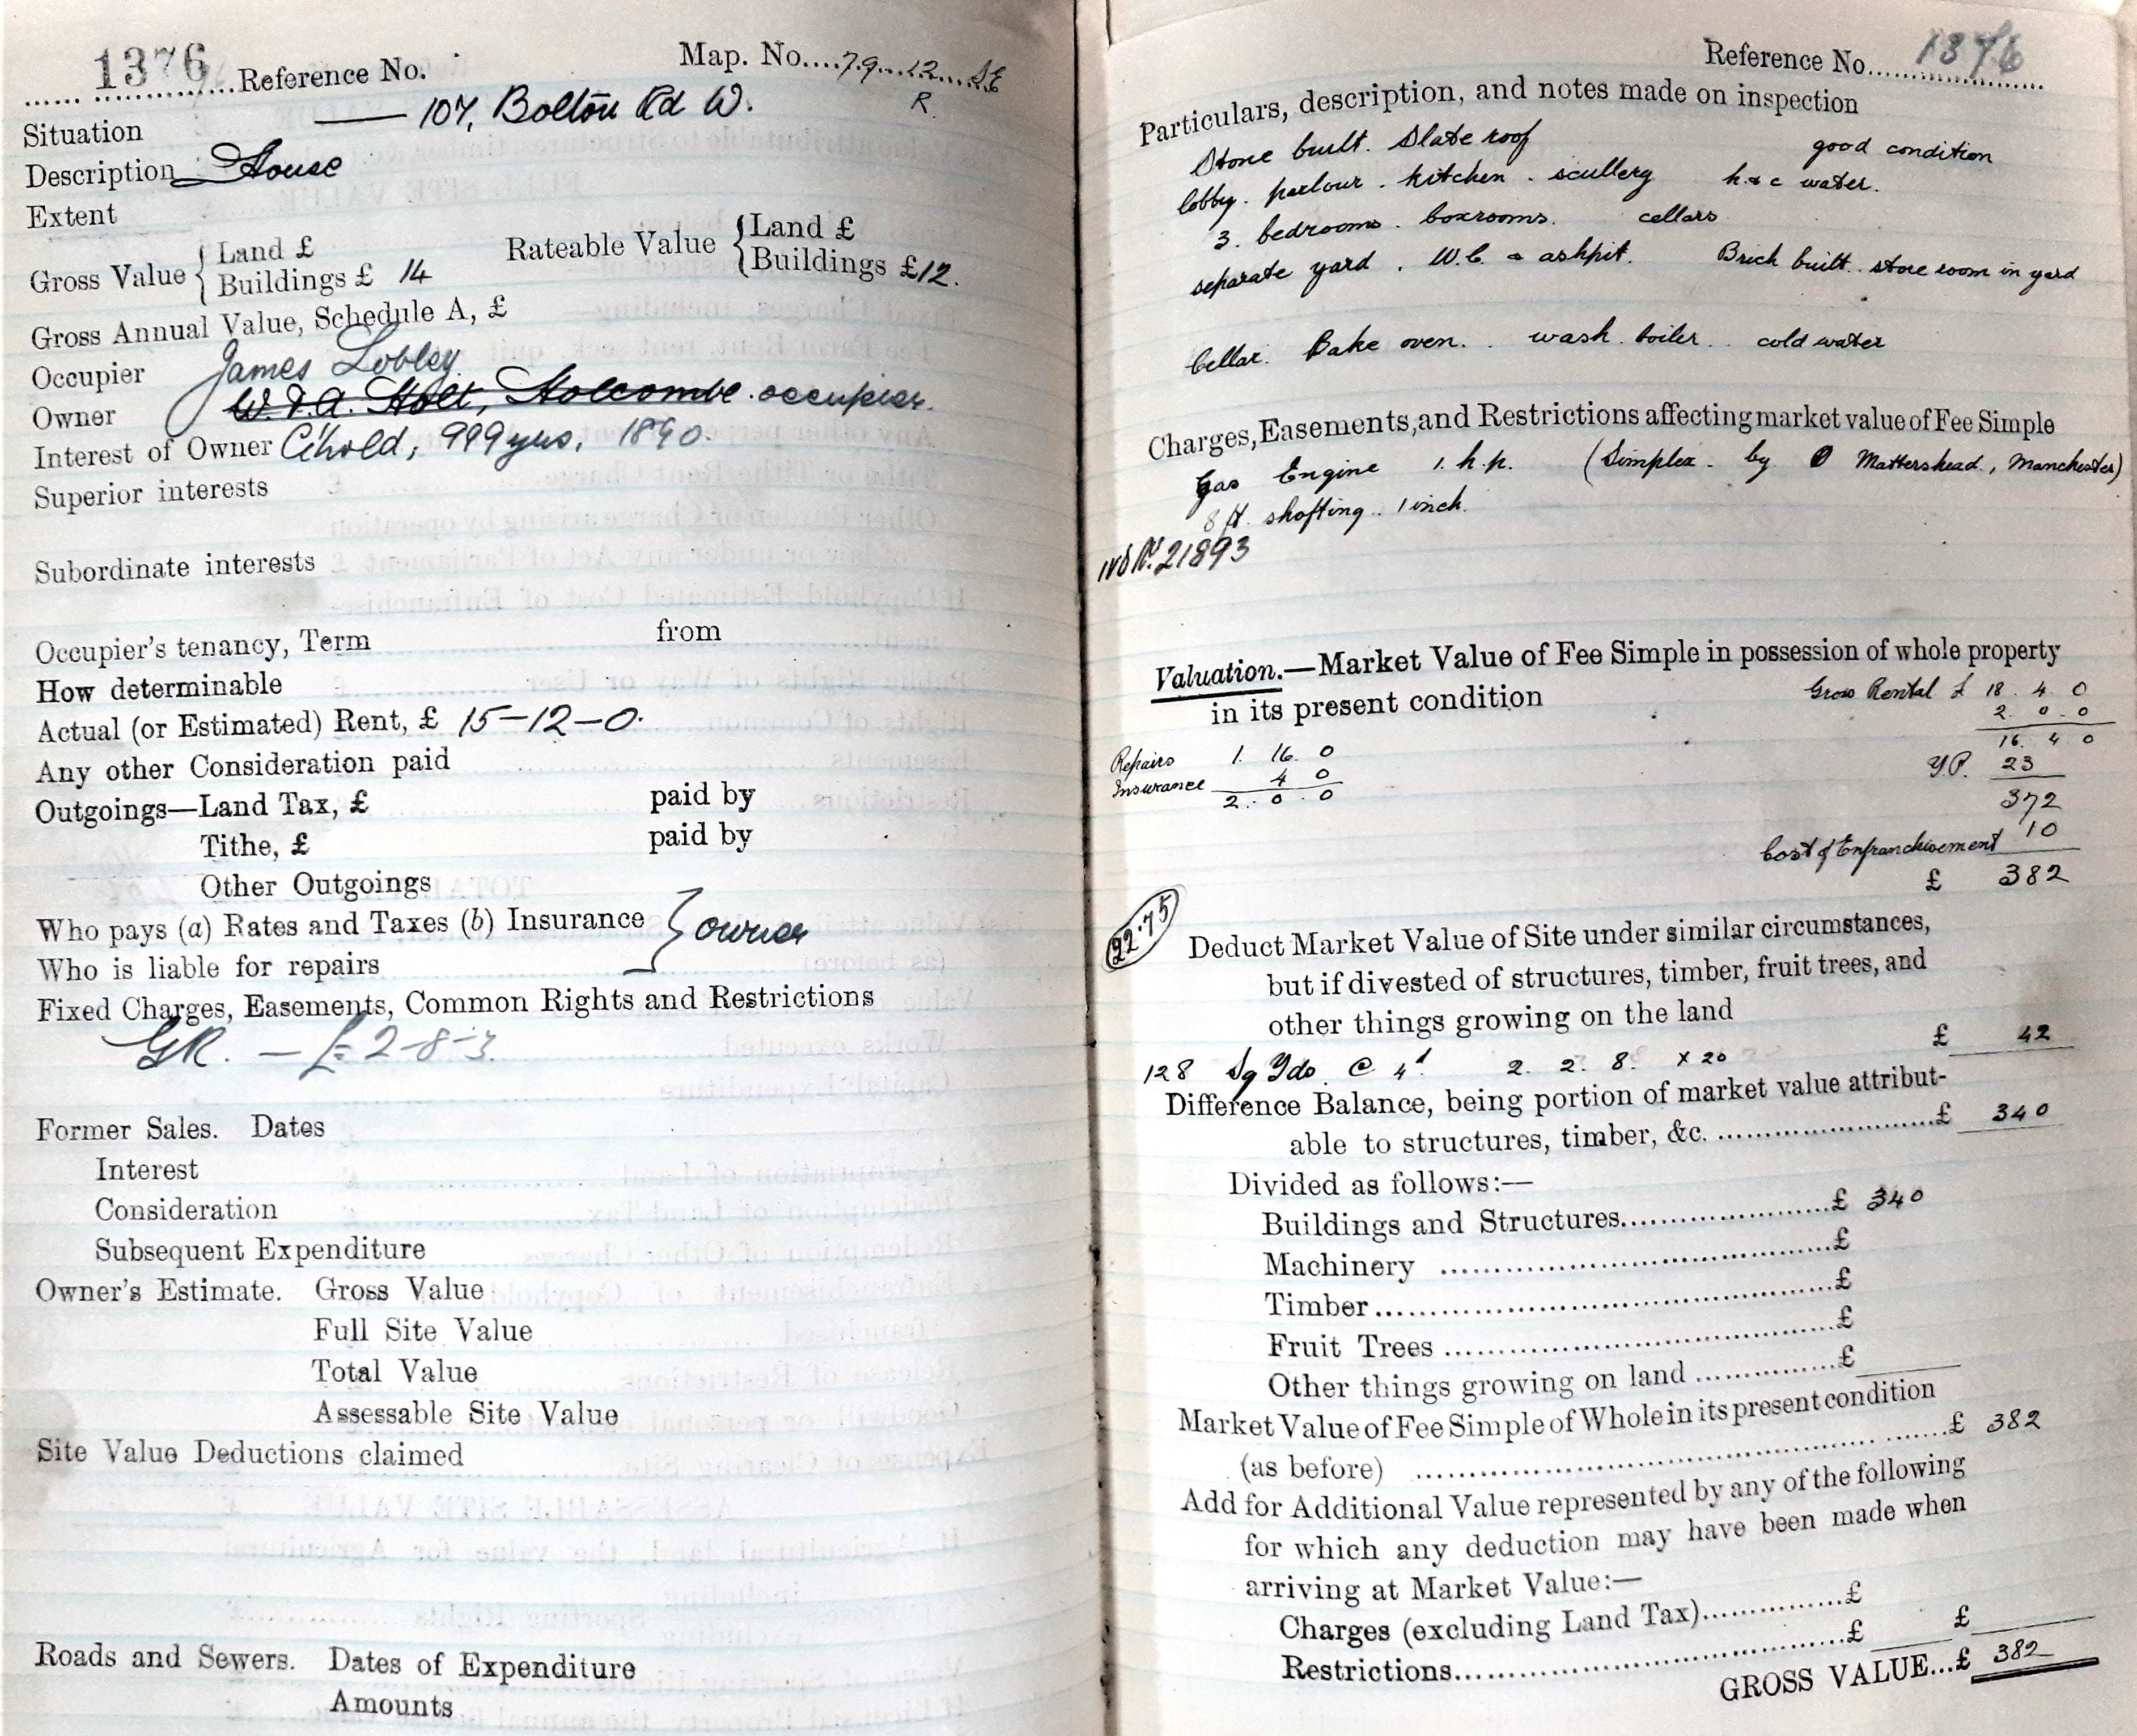 1376 Reference No. Map. No....79..12...SE
R.
Situation — 107, Bolton Rd W.
Description House
Extent
Gross Value { Land £
Buildings £ 14
Rateable Value { Land £
Buildings £12.
Gross Annual Value, Schedule A, £
Occupier James Lobley
Owner W. & A. Holt, Holcombe. occupier.
Interest of Owner C'hold, 999 yrs, 1890.
Superior interests
Subordinate interests
Occupier's tenancy, Term from
How determinable
Actual (or Estimated) Rent, £ 15-12-0.
Any other Consideration paid
Outgoings—Land Tax, £ paid by
Tithe, £ paid by
Other Outgoings
Who pays (a) Rates and Taxes (b) Insurance } owner
Who is liable for repairs
Fixed Charges, Easements, Common Rights and Restrictions
GR. — £2-8-3.
Former Sales. Dates
Interest
Consideration
Subsequent Expenditure
Owner's Estimate. Gross Value
Full Site Value
Total Value
Assessable Site Value
Site Value Deductions claimed
Roads and Sewers. Dates of Expenditure
Amounts
Reference No. 1376
Particulars, description, and notes made on inspection
Stone built. Slate roof good condition
lobby. parlour. kitchen. scullery h & c water.
3. bedrooms. boxrooms. cellars
separate yard. W.C. & ashpit. Brick built. store room in yard
Cellar. Bake oven.. wash. boiler.. cold water
Charges, Easements, and Restrictions affecting market value of Fee Simple
Gas Engine 1. h.p. (Simplex. by Mattershead, Manchester)
8 ft. shafting.. 1 inch.
No. 21893
Valuation.—Market Value of Fee Simple in possession of whole property
in its present condition Gross Rental £ 18. 4. 0
2. 0. 0
16. 4 0
Repairs 1. 16. 0
Insurance 4 0
2. 0. 0
Y.P. 23
372
Cost of Enfranchisement 10
£ 382
22.75
Deduct Market Value of Site under similar circumstances,
but if divested of structures, timber, fruit trees, and
other things growing on the land £ 42
128 Sq Yds. @ 4d 2. 2. 8. x 20
Difference Balance, being portion of market value attribut-
able to structures, timber, &c. ........£ 340
Divided as follows:—
Buildings and Structures........£ 340
Machinery ........£
Timber........£
Fruit Trees ........£
Other things growing on land ........£
Market Value of Fee Simple of Whole in its present condition
(as before) ........£ 382
Add for Additional Value represented by any of the following
for which any deduction may have been made when
arriving at Market Value:—
Charges (excluding Land Tax)........£
Restrictions........£ £
GROSS VALUE...£ 382